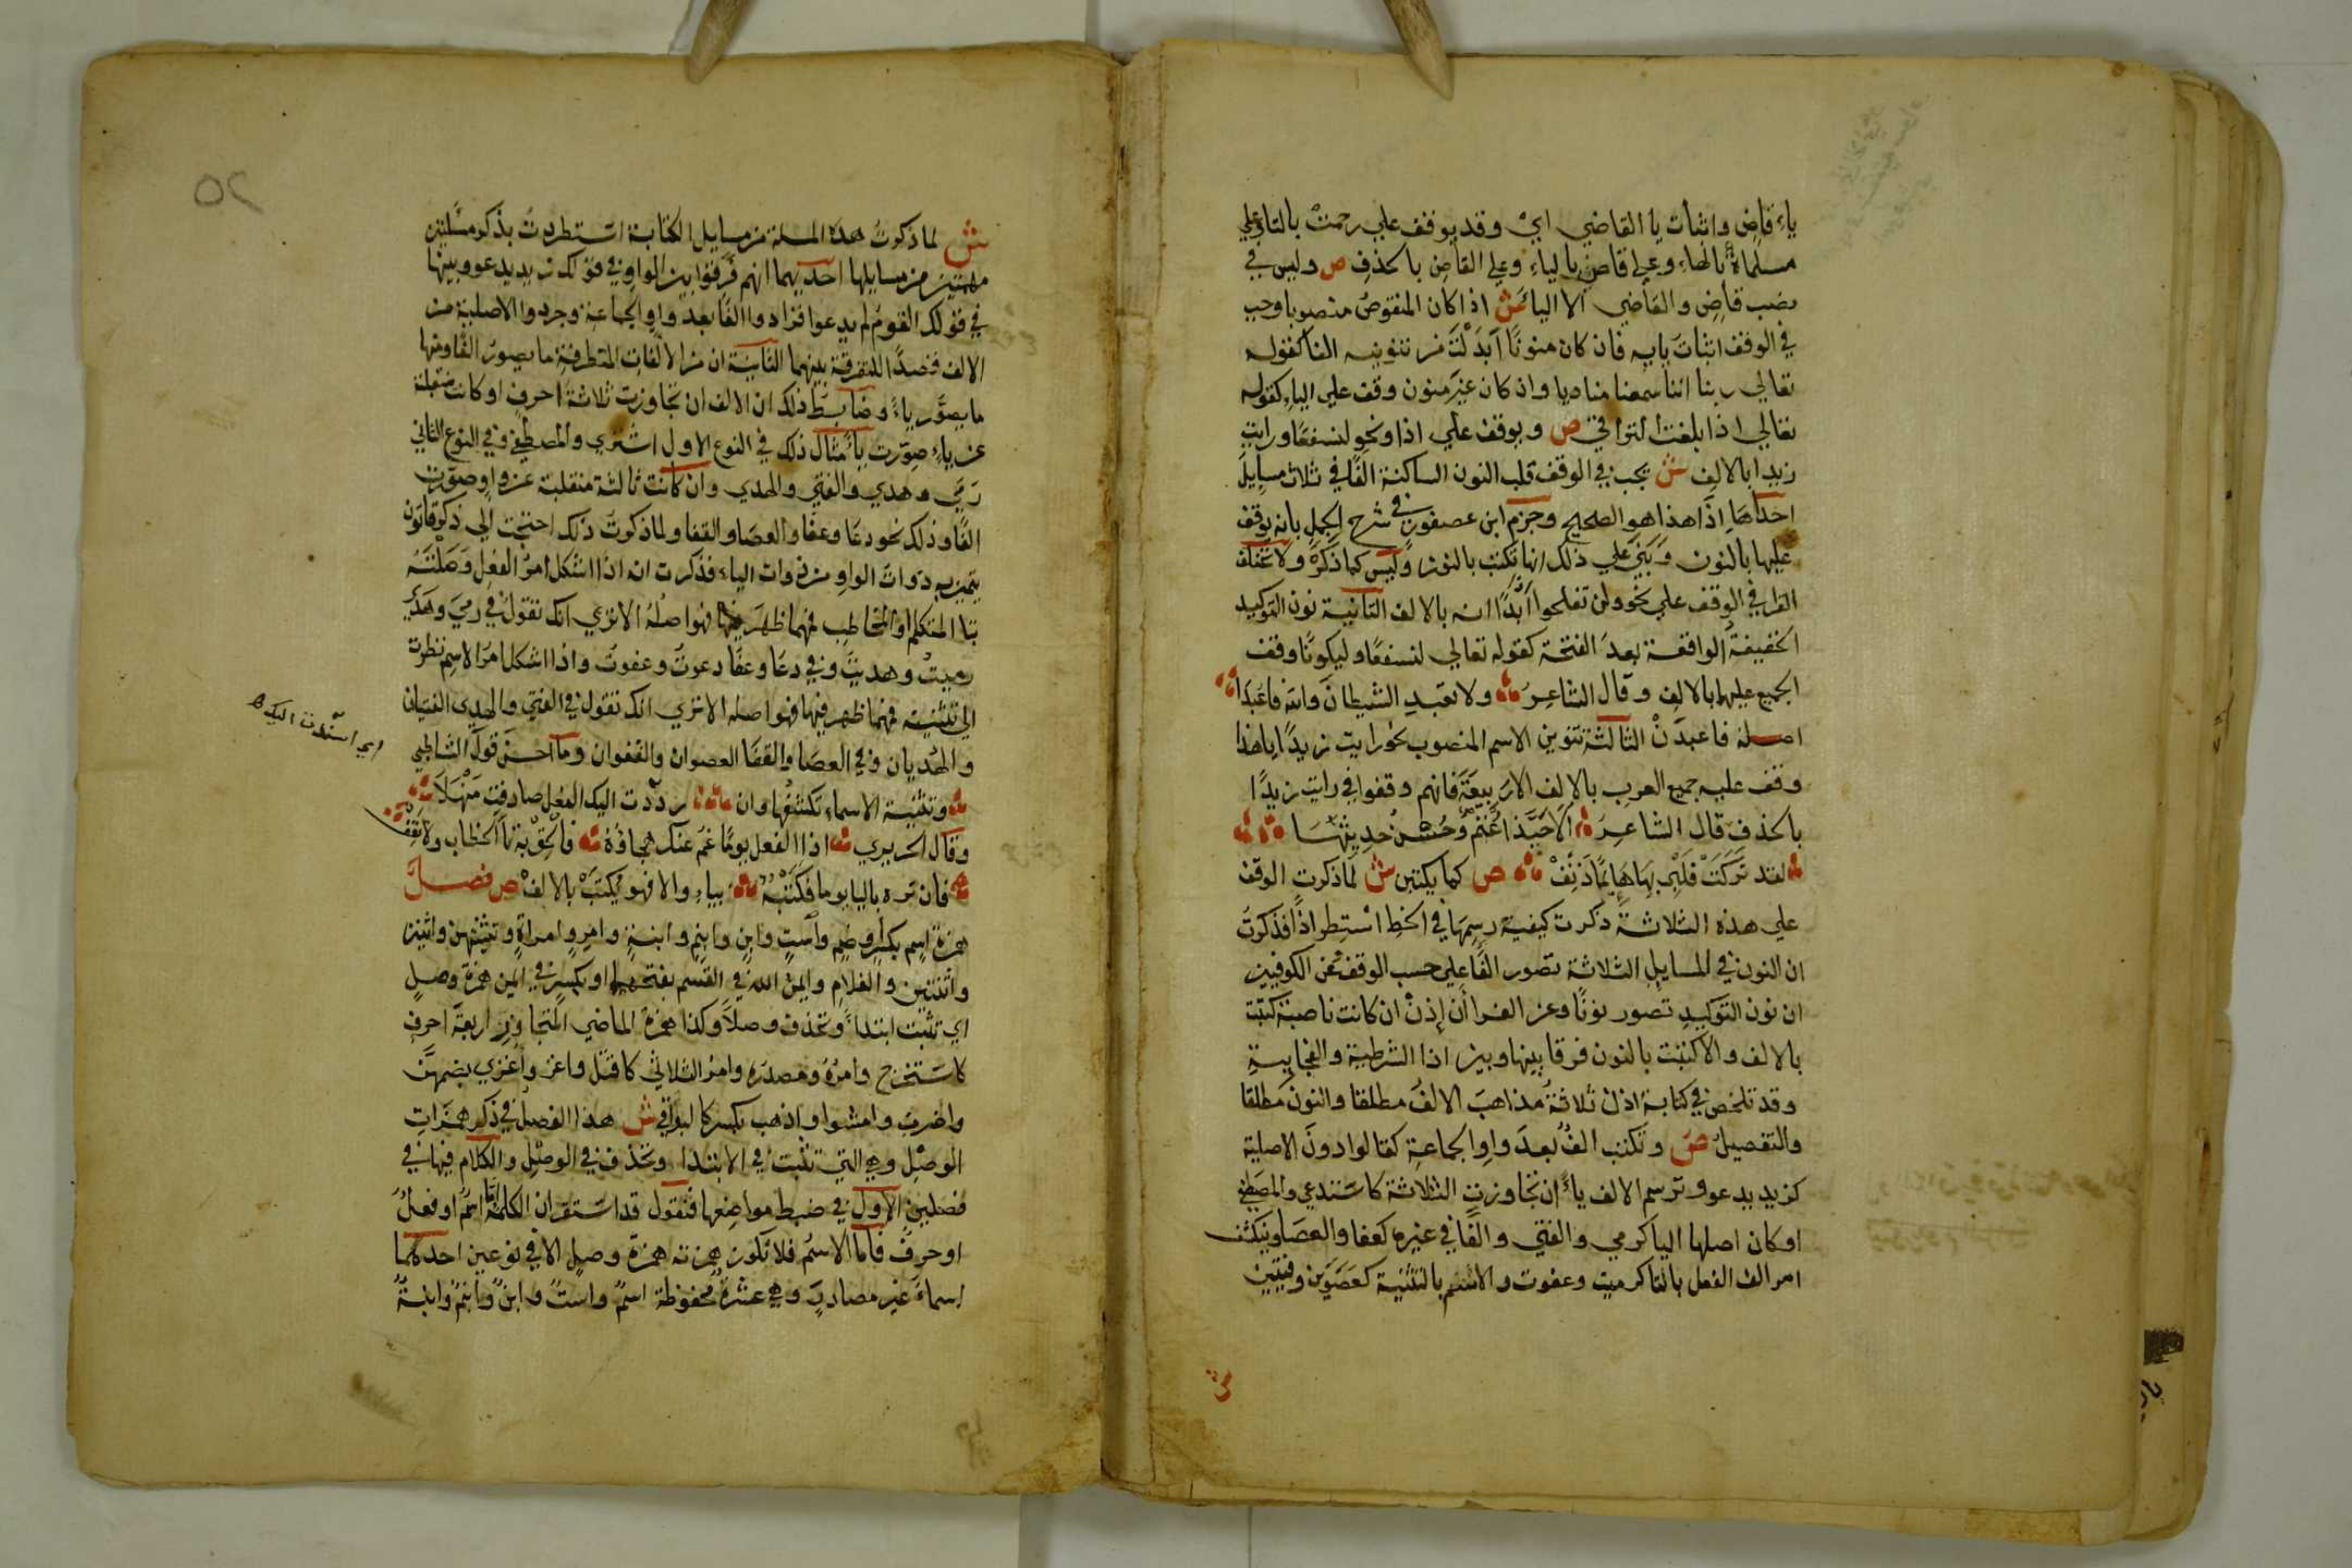 ياء قاض واثبات يا القاضي اي وقد يوقف علي رحمت بالتاء وعلي
مسلماة بالهاء وعلى قاض بالياء وعلي القاض بالحذف ص وليس في
نصب قاض والقاضي الا اليا ش اذا كان المنقوص منصوبا وجب
في الوقف اثبات يايه فان كان منونا ابدلت من تنوينه الفا كقوله
تعالي ربنا اننا سمعنا مناديا وان كان غير منون وقف علي الياء كقوله
تعالي اذا بلغت التراقي ص ويوقف علي اذا ونحو لنسفعا ورايت
زيدا بالالف ش يجب في الوقف قلب النون الساكنة الفا في ثلاث مسايل
احداها اذا هذا هو الصحيح وجزم ابن عصفور في شرح الجمل بانه يوقف
عليها بالنون وبني علي ذلك انها تكتب بالنون وليس كما ذكره ولا تختلف
القرا في الوقف علي نحو ولن تفلحوا اذا ابدا انه بالالف الثانية نون التوكيد
الخفيفة الواقعة بعد الفتحة كقوله تعالي لنسفعا وليكونا وقف
الجميع عليهما بالالف وقال الشاعر ولا تعبد الشيطان والله فاعبدا
اصله فاعبدن الثالثة تنوين الاسم المنصوب نحو رايت زيدا ياهذا
وقف عليه جميع العرب بالالف الا ربيعة فانهم وقفوا في رايت زيدا
بالحذف قال الشاعر الا حبذا غنم وحسن حديثها
لقد تركت قلبي بها هايما دنف ص كما يكتبن ش لما ذكرت الوقف
علي هذه الثلاثة ذكرت كيفية رسمها في الخط استطرادا فذكرت
ان النون في المسايل الثلاثة تصور الفا علي حسب الوقف وعن الكوفيين
ان نون التوكيد تصور نونا وعن الفرا أن إذن ان كانت ناصبة كتبت
بالالف والا كتبت بالنون فرقا بينها وبين اذا الشرطية والفجاييةِ
وقد تلخص في كتابة اذن ثلاثة مذاهب الالف مطلقا والنون مطلقا
والتفصيل ص وتكتب الف بعد واو الجماعة كقالوا دون الاصلية
كزيد يدعو وترسم الالف ياء ان تجاوزت الثلاثة كاستدعي والمصطفي
اوكان اصلها اليا كرمي والفتي والفا في غيره كعفا والعصا وينكشف
امر الف الفعل بالتا كرميت وعفوت والاسم بالتثنية كعصوين وفتيين
ش لما ذكرت هذه المسلة من مسايل الكتابة استطردت بذكر مسلتين
مهمتين من مسايلها احديهما انهم فرقوا بين الواو في قولك زيد يدعو وبينها
في قولك القوم لم يدعوا فزادوا الفا بعد واو الجماعة وجردوا الاصلية من
الالف قصدا للتفرقة بينهما الثانية ان من الالفات المتطرفة ما يصور الفا ومنها
ما يصور ياء وضابط ذلك ان الالف ان تجاوزت ثلاثة احرف او كانت منقلبة
عن ياء صورت ياء مثال ذلك في النوع الاول اشتري والمصطفي وفي النوع الثاني
رمي وهدي والفتي والهدي وان كانت ثالثة منقلبة عن واو صورت
الفا وذلك نحو دعا وعفا والعصا والقفا ولما ذكرت ذلك احتجت الي ذكر قانون
يتميز به ذوات الواو من ذوات الياء فذكرت انه اذا اشكل امر الفعل وصلته
بتا المتكلم او المخاطب فمهما ظهر فيها فهو اصله الا تري انك تقول في رمي وهدي
رميت وهديت وفي دعا وعفا دعوت وعفوت واذا اشكل امر الاسم نظرت
الي تثنيته فمهما ظهر فيها فهو اصله الا تري انك تقول في الفتي والهدي الفتيان
والهديان وفي العصا والقفا العصوان والقفوان وما احسن قول الشاطبي
وتثنية الاسماء تكشفها وان رددت اليك الفعل صادفت منهلا
وقال الحريري اذا الفعل يوما غم عنك هجاؤه فالحق به تا الخطاب ولا تقف
فان تره باليا يوما فكتبه بياء والا فهو يكتب بالالف ص فصل
همزة اسم بكسر وضم واست وابن وابنم وابنة وامرء وامراة وتثنيتهن واثنين
واثنتين والغلام وايمن الله في القسم بفتحهما او بكسر في ايمن همزة وصل
اي تثبت ابتداء وتحذف وصلا وكذا همزة الماضي المتجاوز اربعة احرف
كاستخرج وامره ومصدره وامر الثلاثي كاقتل واغز واغزي بضمهن
واضرب وامشوا واذهب بكسر كالبواقي ش هذا الفصل في ذكر همزات
الوصل وهي التي تثبت في الابتدا وتحذف في الوصل والكلام فيها في
فصلين الاول في ضبط مواضعها فنقول قد استقر ان الكلمة اما اسم او فعل
او حرف فاما الاسم فلا تكون همزته همزة وصل الا في نوعين احدهما
اسماء غير مصادر وهي عشرة محفوظة اسم واست وابن وابنم وابنة
اي اسندت اليك